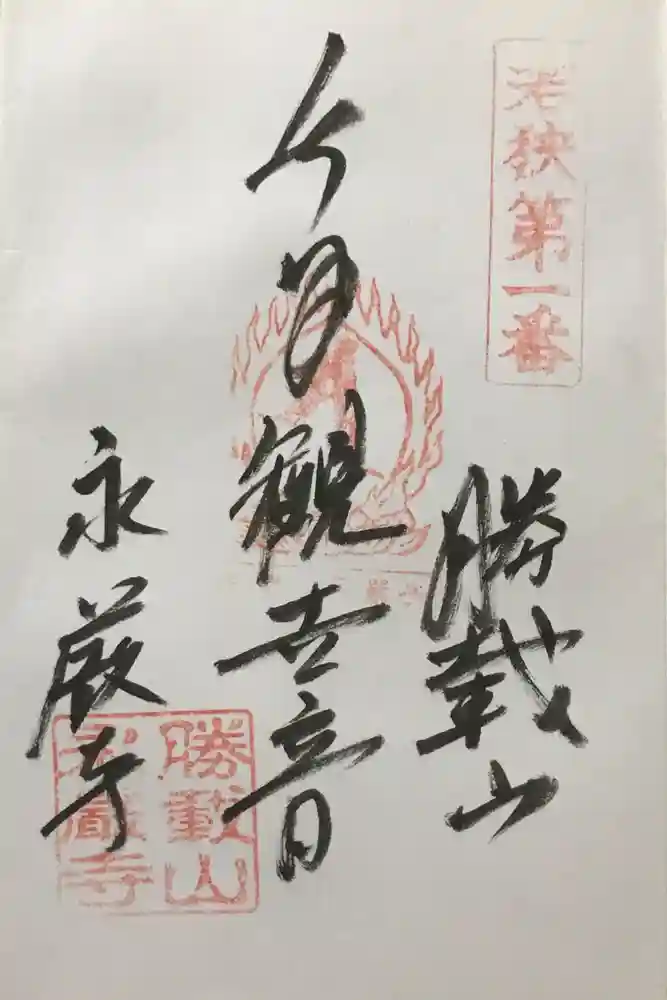 若狭第一番
勝載山
月観世音
永厳寺
勝載山
永巌寺